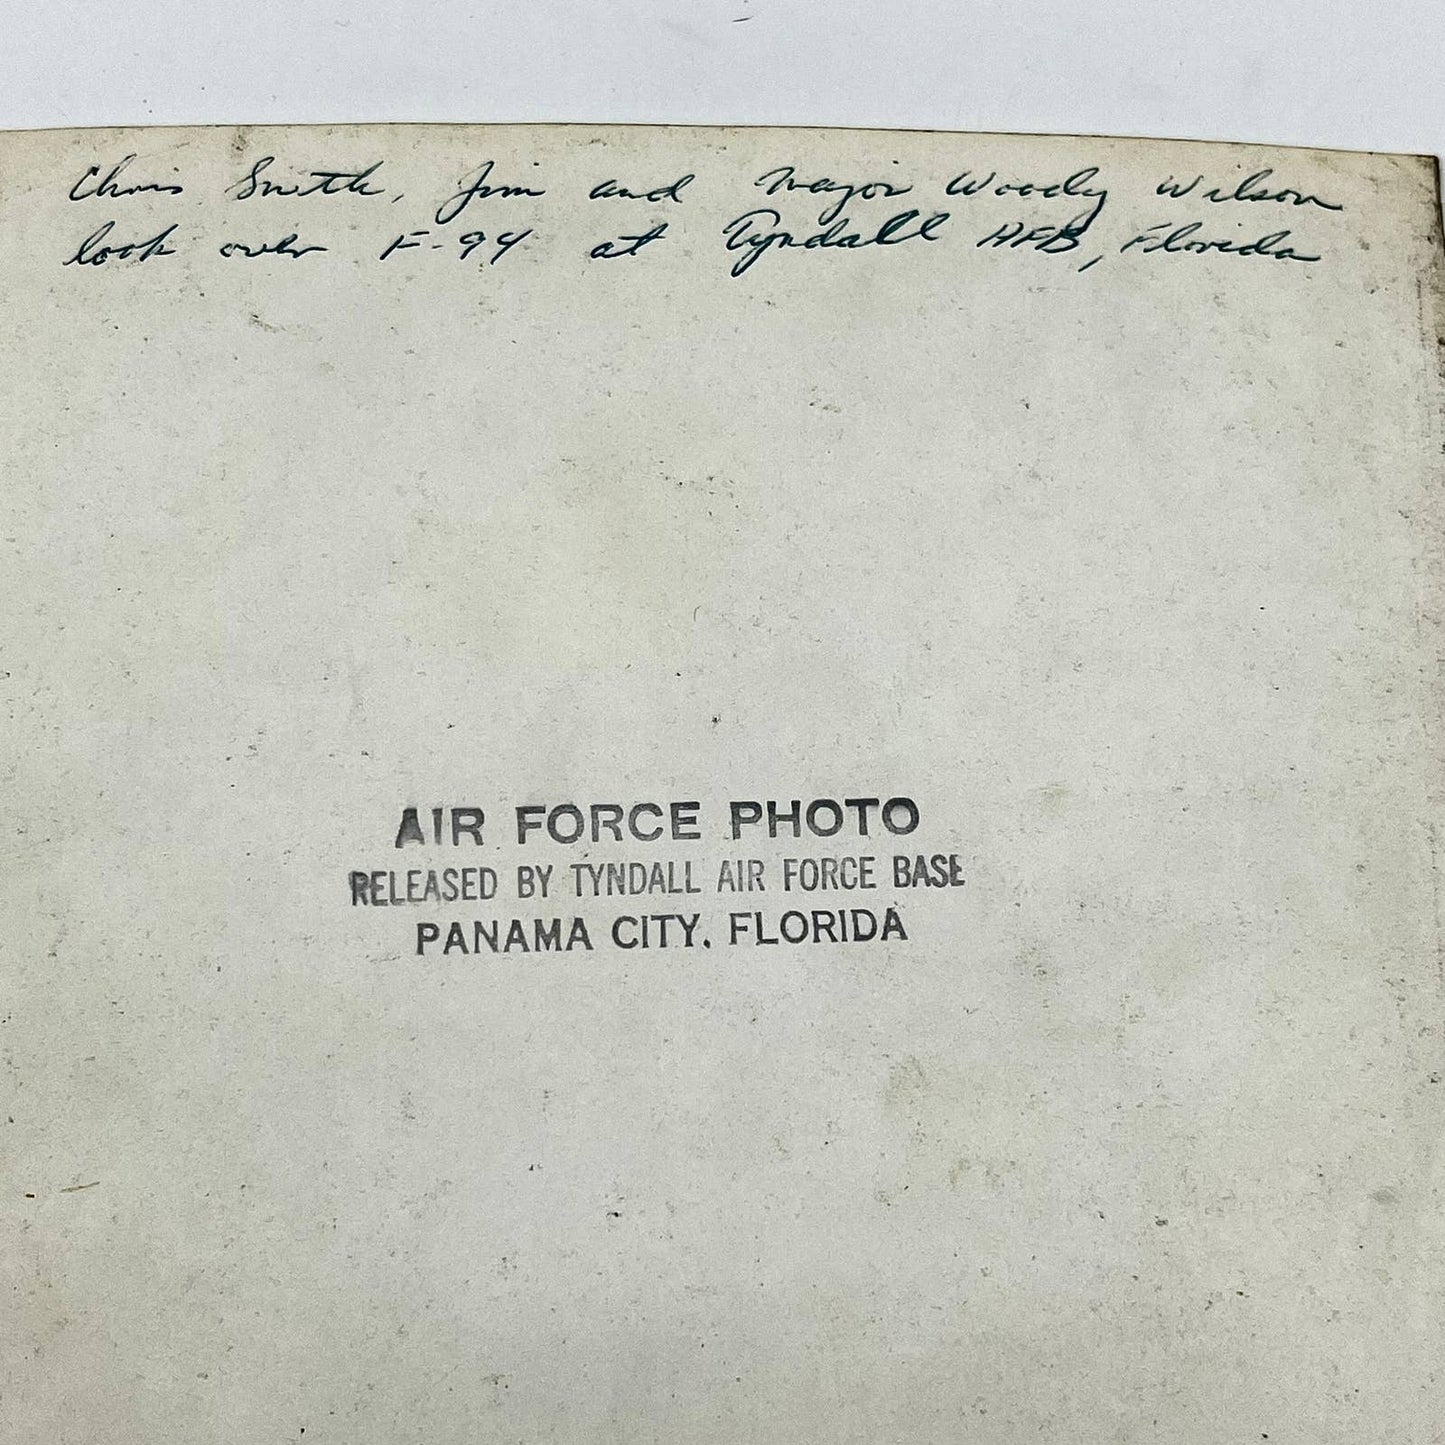 Chris Smith, Jim and Major Woody Wilson
look over F-94 at Tyndall AFB, Florida
AIR FORCE PHOTO
RELEASED BY TYNDALL AIR FORCE BASE
PANAMA CITY, FLORIDA